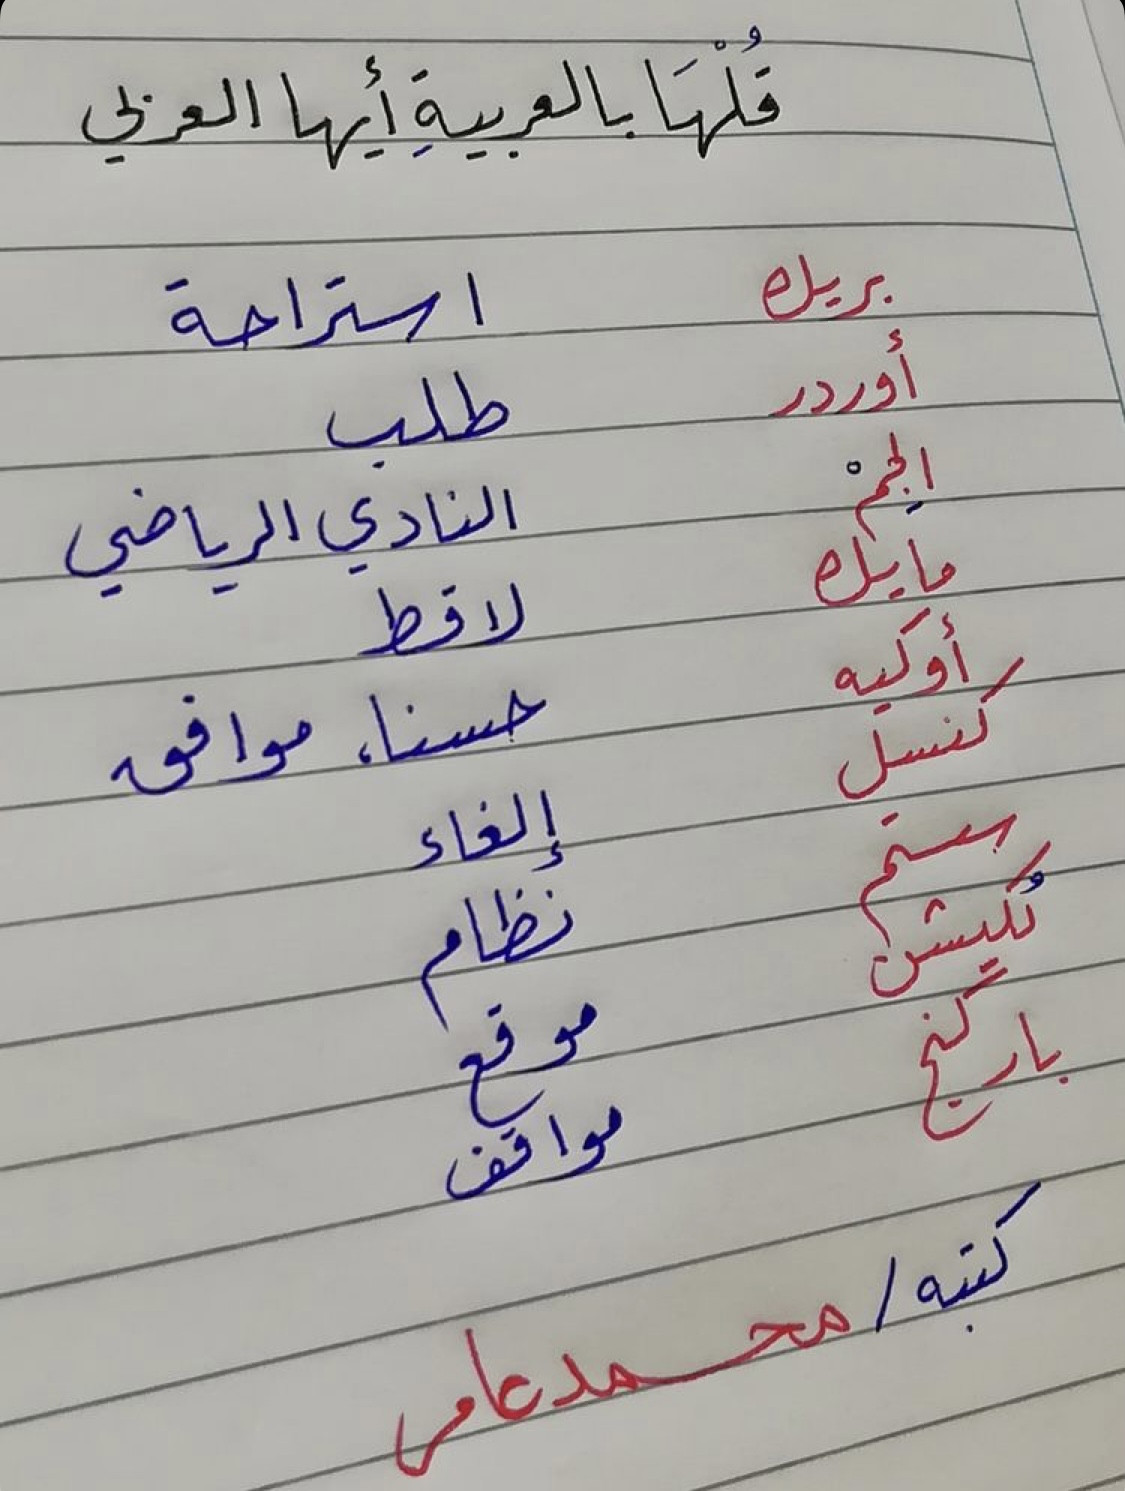 قُلْهَا بالعربيةِ أيها العربي
بريك استراحة
أوردر طلب
الجِمْ النادي الرياضي
مايك لاقط
أوكيه حسنا، موافق
كنسل إلغاء
سستم نظام
لُكيشن موقع
باركنج مواقف
كتبه / محمد عامر